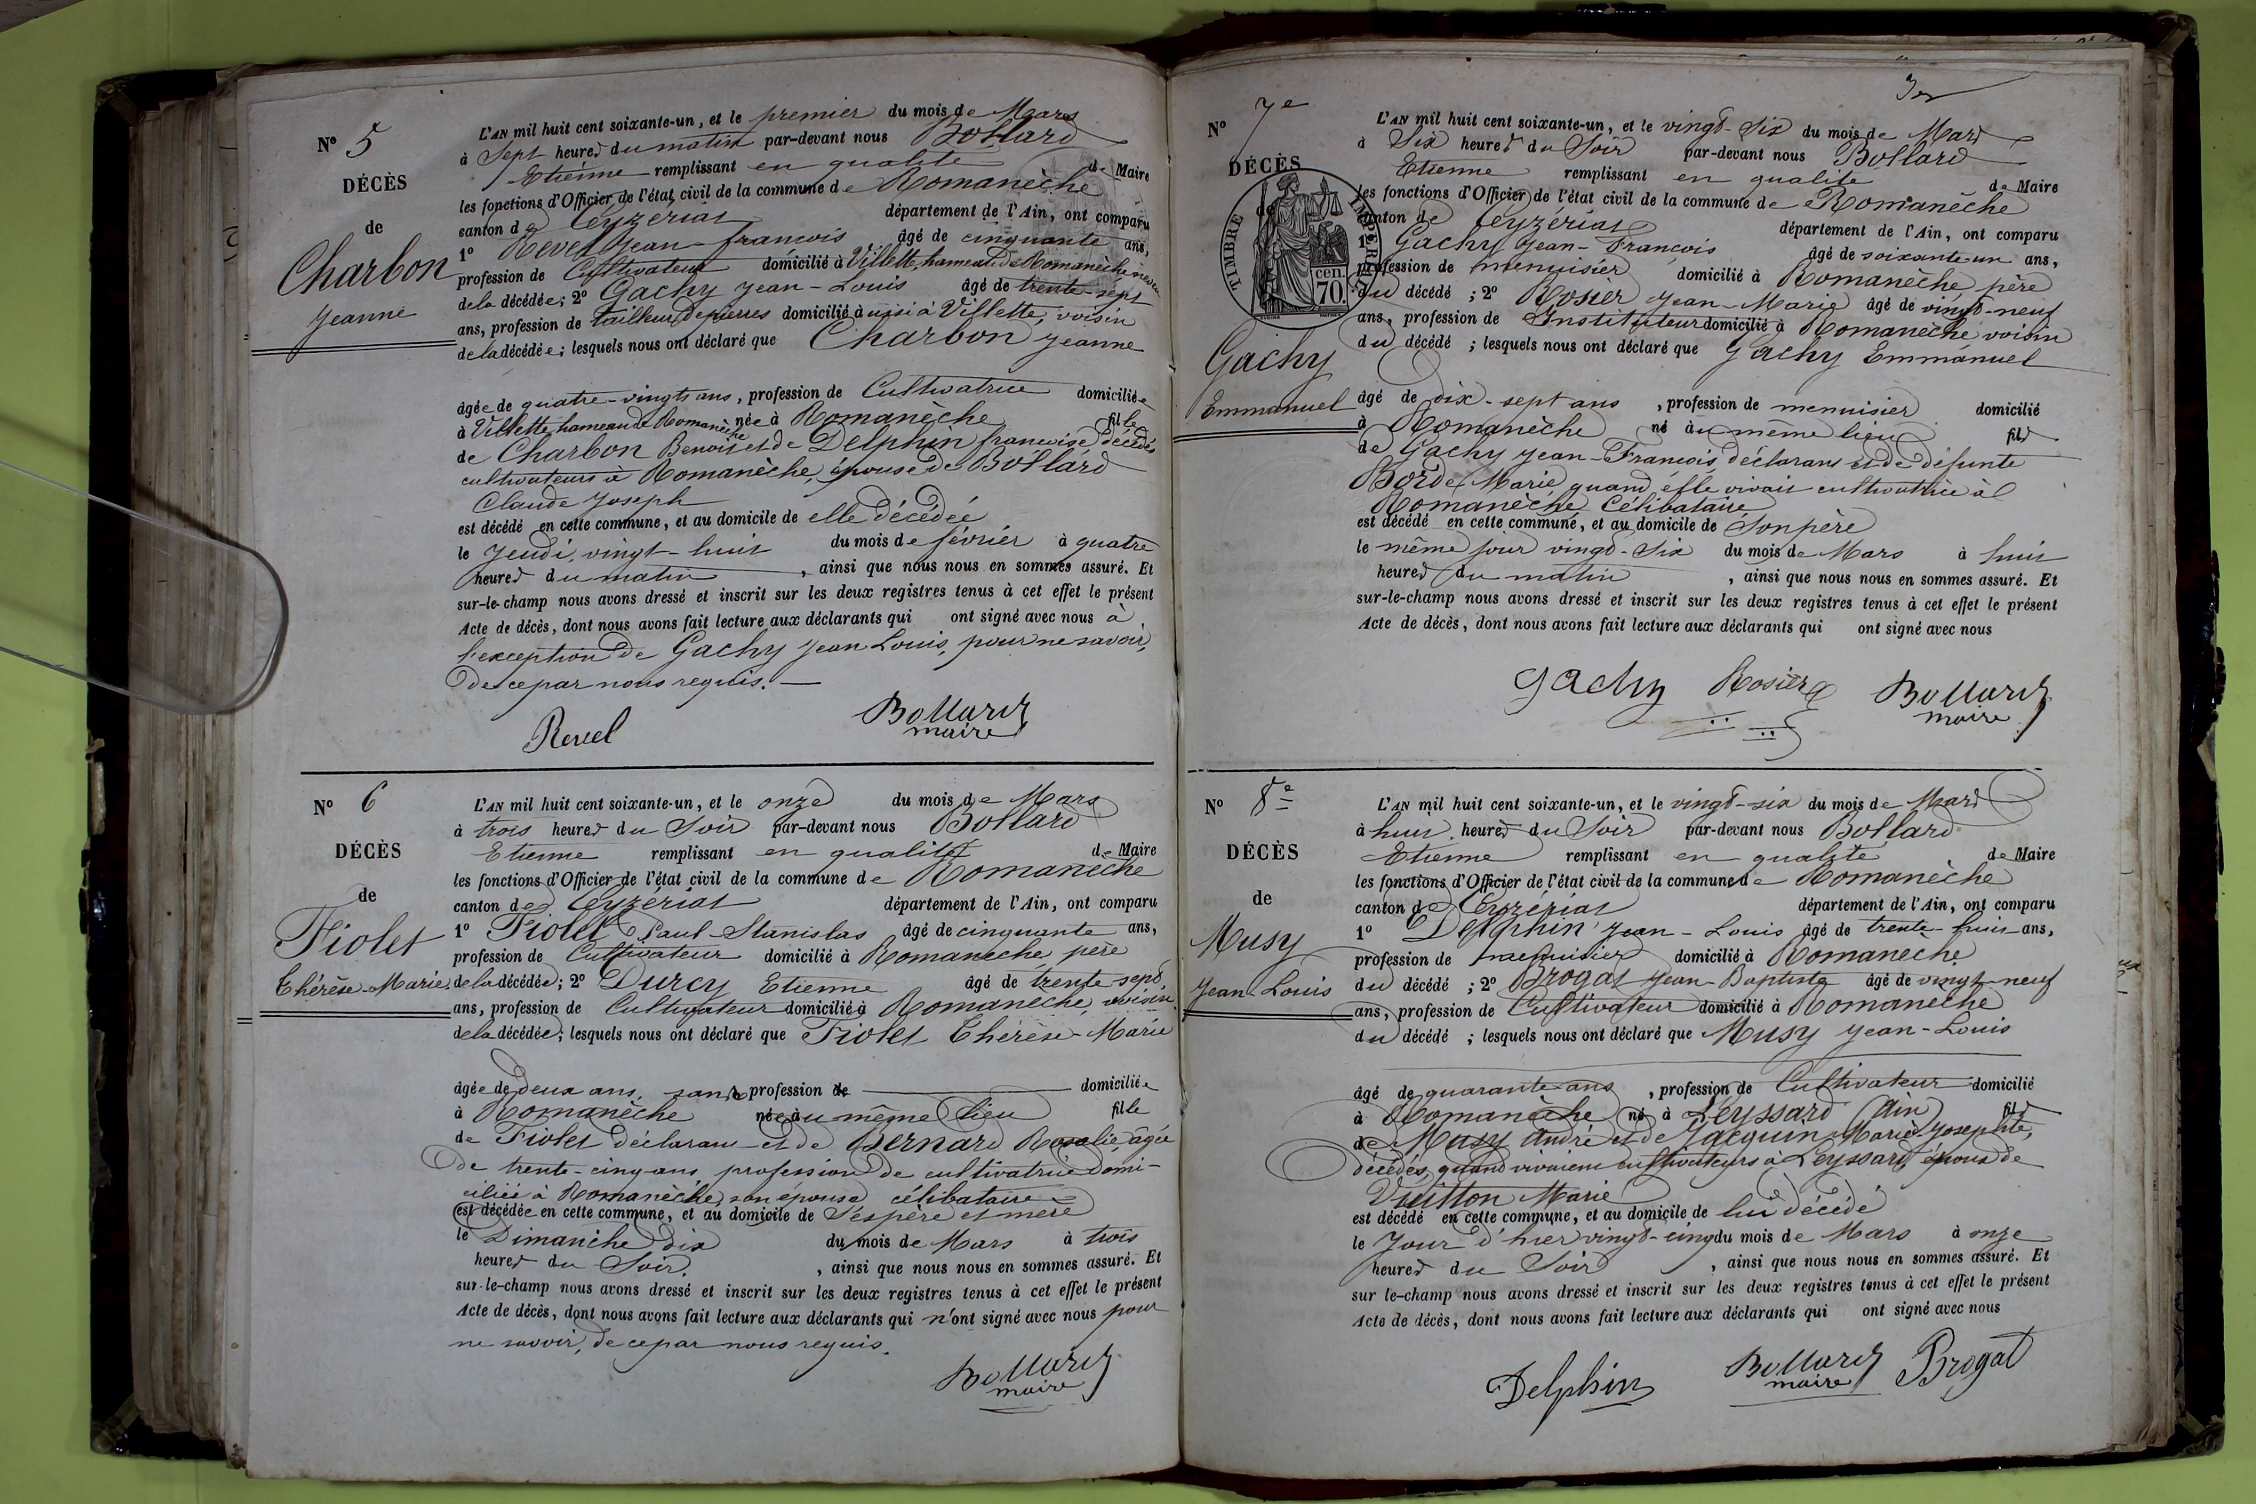 Nº 5
DÉCÈS
de
Charbon
Jeanne
L'AN mil huit cent soixante-un, et le premier du mois de Mars
à Sept heures du matin par-devant nous Bollard
Etienne remplissant en qualité de Maire
les fonctions d'Officier de l'état civil de la commune de Romanèche
canton de Ceyzériat département de l'Ain, ont comparu
1º Revel Jean-françois âgé de cinquante ans,
profession de Cultivateur domicilié à Villette, hameau de Romanèche neveu
de la décédée; 2º Gachy Jean-Louis âgé de trente-sept
ans, profession de tailleur de pierres domicilié à aussi à Villette, voisin
de la décédée; lesquels nous ont déclaré que Charbon Jeanne
âgée de quatre-vingts ans, profession de Cultivatrice domiciliée
à Villette hameau de Romanèche née à Romaneche fille
de Charbon Benoit et de Delphin françoise décédés
cultivateurs à Romanèche, épouse de Bollard
Claude Joseph
est décédé en cette commune, et au domicile de elle décédée
le Jeudi, vingt-huit du mois de février à quatre
heures du matin, ainsi que nous nous en sommes assuré. Et
sur-le-champ nous avons dressé et inscrit sur les deux registres tenus à cet effet le présent
Acte de décès, dont nous avons fait lecture aux déclarants qui ont signé avec nous à
l'exception de Gachy Jean Louis, pour ne savoir,
de ce par nous requis.
Revel Bollard
maire
Nº 6
DÉCÈS
de
Fiolet
Thérèse-Marie
L'AN mil huit cent soixante-un, et le onze du mois de Mars
à trois heures du Soir par-devant nous Bollard
Etienne remplissant en qualité de Maire
les fonctions d'Officier de l'état civil de la commune de Romanèche
canton de Ceyzériat département de l'Ain, ont comparu
1º Fiolet Paul-Stanislas âgé de cinquante ans,
profession de Cultivateur domicilié à Romaneche père
de la décédée; 2º Durcy Etienne âgé de trente-sept
ans, profession de Cultivateur domicilié à Romanèche, voisin
de la décédée; lesquels nous ont déclaré que Fiolet Thérèse-Marie
âgée de deux ans, sans profession de domiciliée
à Romanèche née à au même lieu fille
de Fiolet déclarant et de Bernard Rosalie, âgée
de trente-cinq ans profession de cultivatrice domi-
ciliée à Romanèche, son épouse célibataire
est décédée en cette commune, et au domicile de Ses père et mère
le Dimanche dix du mois de Mars à trois
heures du Soir, ainsi que nous nous en sommes assuré. Et
sur-le-champ nous avons dressé et inscrit sur les deux registres tenus à cet effet le présent
Acte de décès, dont nous avons fait lecture aux déclarants qui n'ont signé avec nous pour
ne savoir, de ce par nous requis.
Bollard
maire
Nº 7e
DÉCÈS
de
TIMBRE IMPÉRIAL
70 cen.
Gachy
Emmanuel
L'AN mil huit cent soixante-un, et le vingt-six du mois de Mars
à Six heures du Soir par-devant nous Bollard
Etienne remplissant en qualité de Maire
les fonctions d'Officier de l'état civil de la commune de Romanèche
canton de Ceyzériat département de l'Ain, ont comparu
1º Gachy Jean-François âgé de soixante-un ans,
profession de menuisier domicilié à Romanèche père
du décédé; 2º Rosier Jean-Marie âgé de vingt-neuf
ans, profession de Instituteur domicilié à Romanèche voisin
du décédé; lesquels nous ont déclaré que Gachy Emmanuel
âgé de dix-sept ans, profession de menuisier domicilié
à Romanèche né au même lieu fils
de Gachy Jean-François, déclarant et de défunte
Borde Marie quand elle vivait cultivatrice à
Romanèche Célibataire
est décédé en cette commune, et au domicile de Son père
le même jour vingt-Six du mois de Mars à huit
heures du matin, ainsi que nous nous en sommes assuré. Et
sur-le-champ nous avons dressé et inscrit sur les deux registres tenus à cet effet le présent
Acte de décès, dont nous avons fait lecture aux déclarants qui ont signé avec nous
Gachy Rosier Bollard
maire
Nº 8e
DÉCÈS
de
Musy
Jean-Louis
L'AN mil huit cent soixante-un, et le vingt-six du mois de Mars
à huit heures du Soir par-devant nous Bollard
Etienne remplissant en qualité de Maire
les fonctions d'Officier de l'état civil de la commune de Romanèche
canton de Ceyzériat département de l'Ain, ont comparu
1º Delphin Jean-Louis âgé de trente-huit ans,
profession de menuisier domicilié à Romanèche
du décédé; 2º Brogat Jean-Baptiste âgé de vingt-neuf
ans, profession de Cultivateur domicilié à Romanèche
du décédé; lesquels nous ont déclaré que Musy Jean-Louis
âgé de quarante ans, profession de Cultivateur domicilié
à Romanèche né à Leyssard (Ain) fils
de Musy André et de Jacquin Marie-Josephte,
décédés, quand vivaient cultivateurs à Leyssard, époux de
Vuitton Marie
est décédé en cette commune, et au domicile de lui décédé
le Jour d'hier vingt-cinq du mois de Mars à onze
heures du Soir, ainsi que nous nous en sommes assuré. Et
sur-le-champ nous avons dressé et inscrit sur les deux registres tenus à cet effet le présent
Acte de décès, dont nous avons fait lecture aux déclarants qui ont signé avec nous
Delphin Bollard Brogat
maire